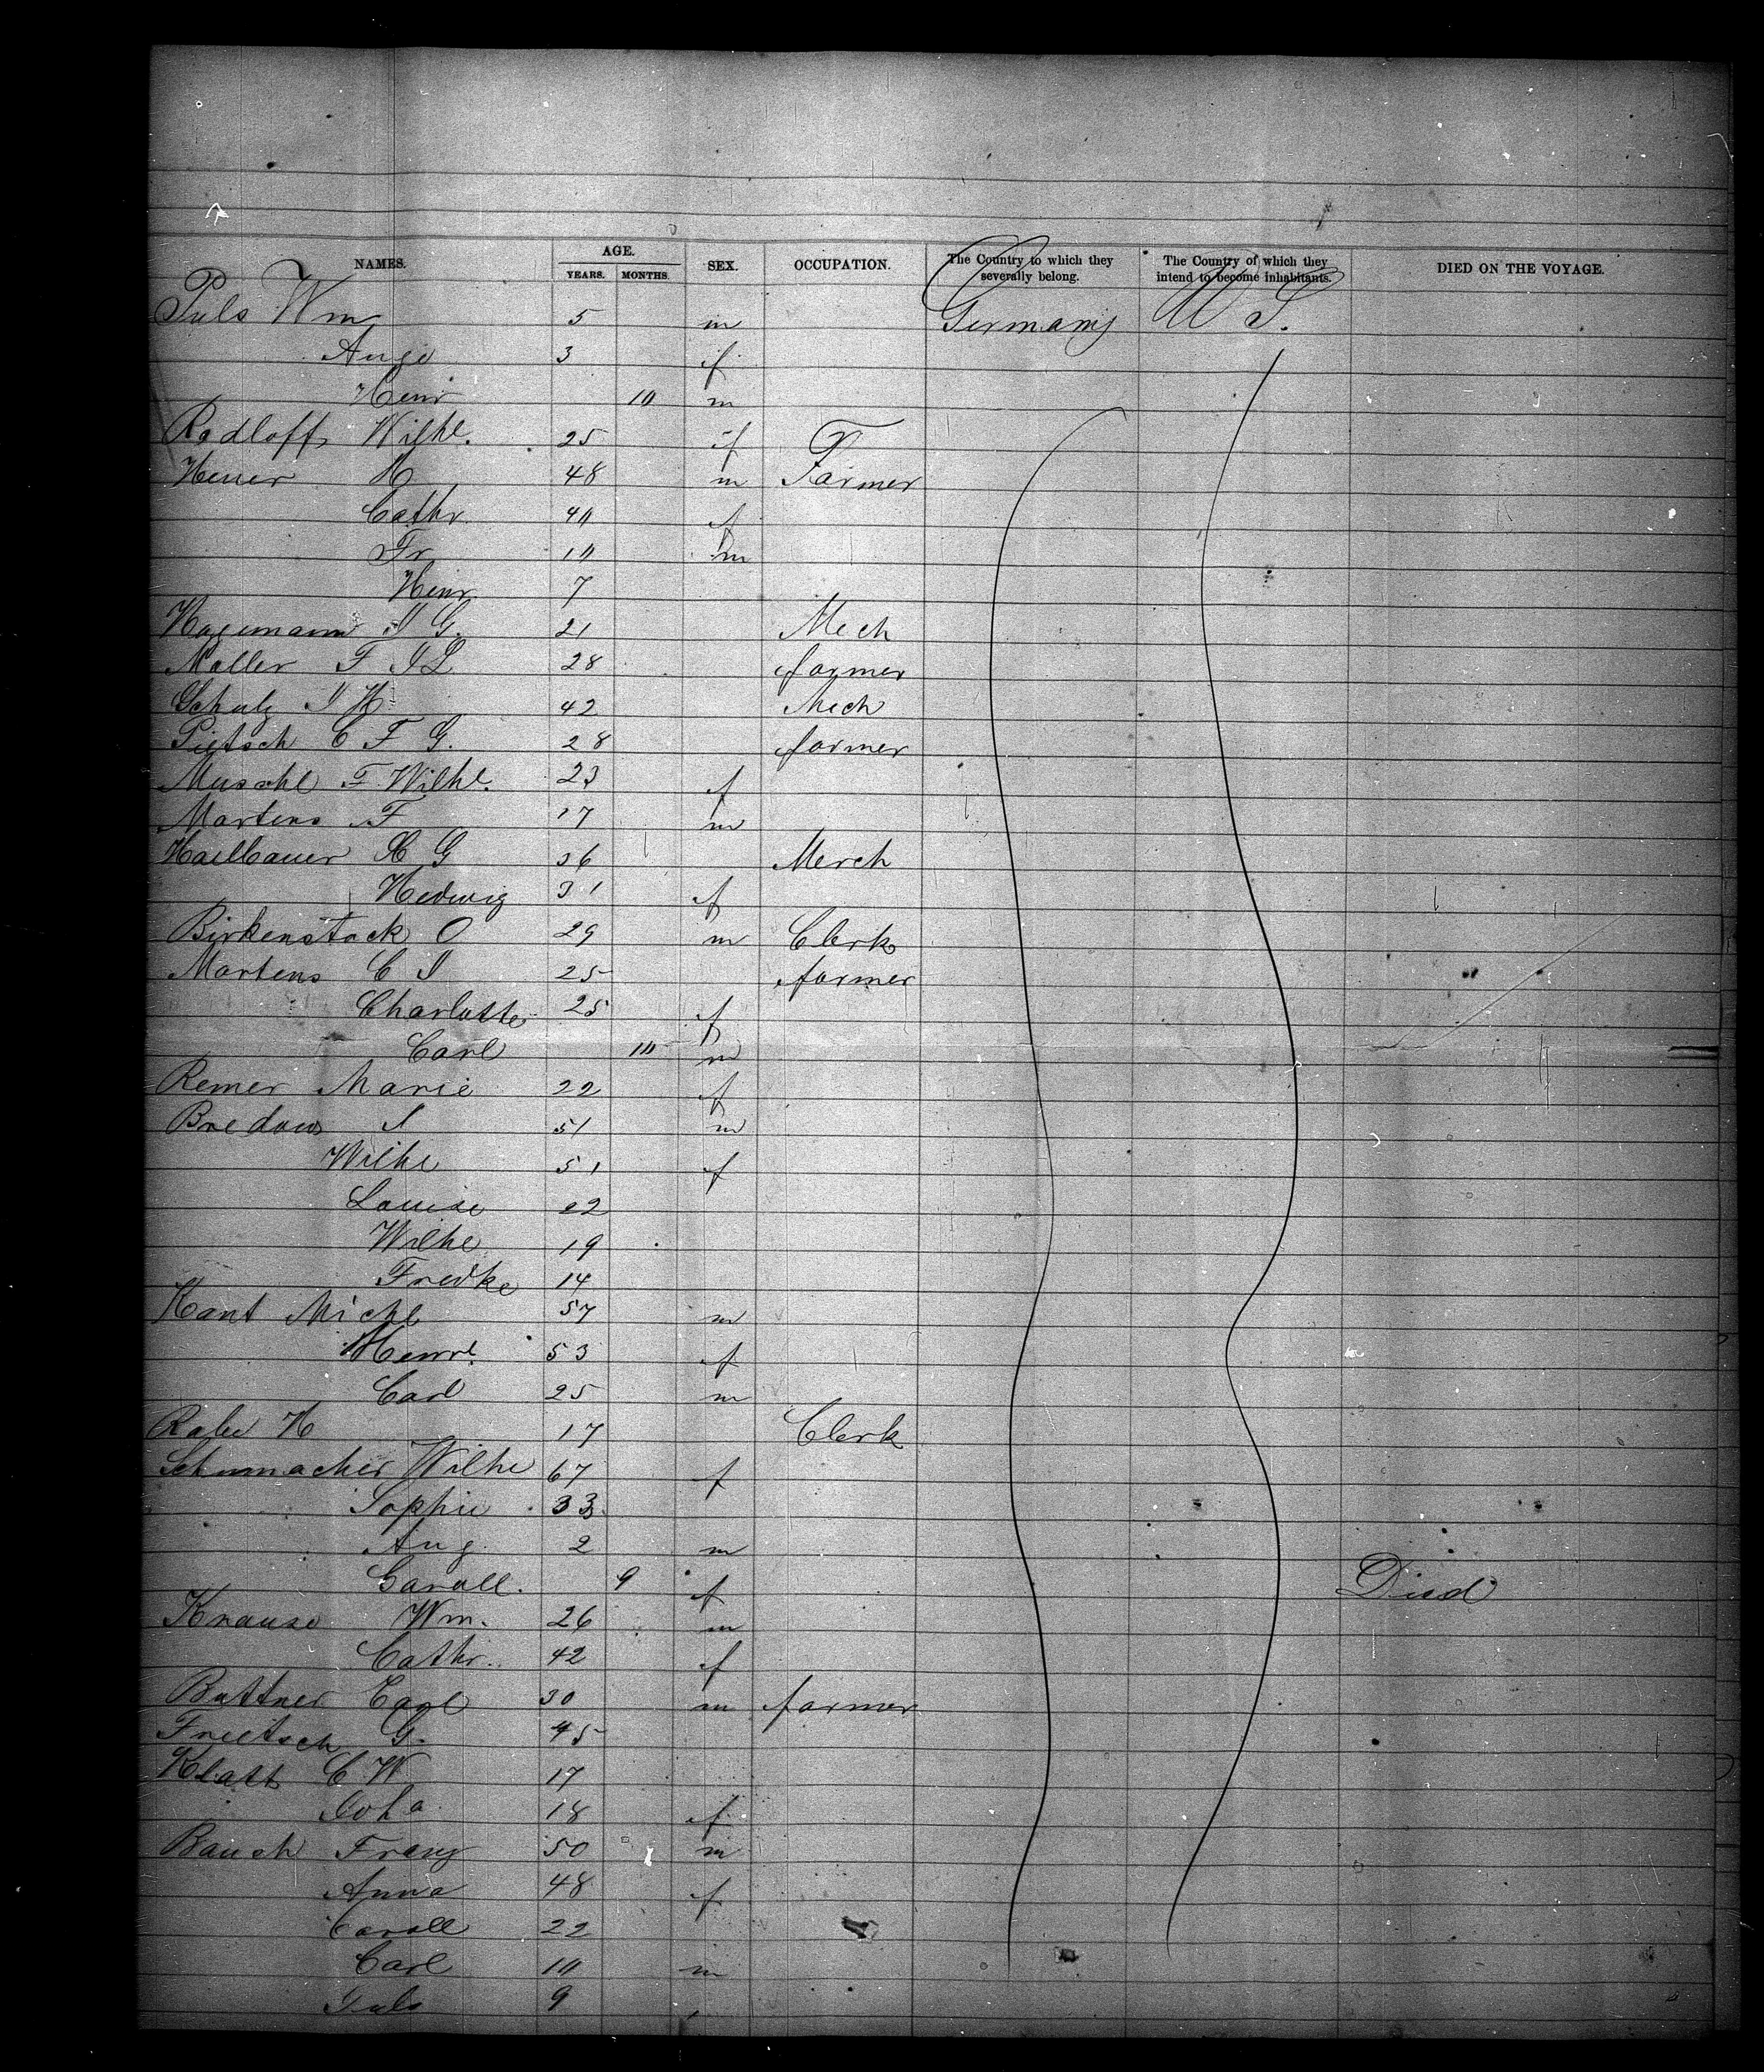 NAMES. AGE. YEARS. MONTHS. SEX. OCCUPATION. The Country to which they severally belong. The Country of which they intend to become inhabitants. DIED ON THE VOYAGE.
Puls Wm 5 m Germany U S.
Auge 3 f
Heinr 10 m
Radloff Wilhe. 25 f
Heuer H 48 m Farmer
Cathr. 40 f
Fr 10 m
Heinr 7
Hagemann J G. 21 Mech
Moller F J L 28 farmer
Schulz J H 42 Mech
Pietsch C F G. 28 farmer
F. Wilhe. 23 f
Martens F 17 m
G 36 Merch
Hedwig 31 f
Birkenstock O 29 m Clerk
Martens C J 25 farmer
Charlotte 25 f
Carl 10 m
Remer Marie 22 f
Bredow J 51 m
Wilhe 51 f
Louise 22
Wilhe 19
Fredke 14
Kant Michl 57 m
Henrt. 53 f
Carl 25 m
Rabe H 17 Clerk
Schumacher Wilhe 67 f
Sophie 33
Aug. 2 m
Caroll. 9 f Died
Krause Wm. 26 m
Cathr. 42 f
Buttner Carl 30 m farmer
Frietsch G. 45
Klatt C W 17
Joha. 18 f
Bausch Franz 50 m
Anna 48 f
Caroll 22
Carl 10 m
9